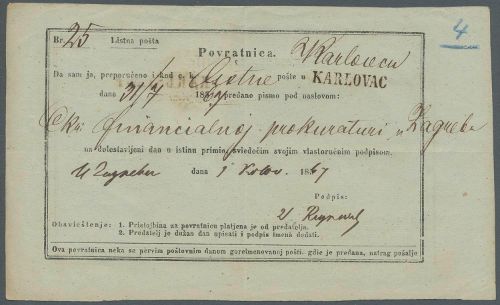 Br. 25 Listna pošta 4
Povratnica. Karlovcu
Da sam ja, preporučeno i kod c. k. Listne pošte u KARLOVAC
dano 31/7 186 predano pismo pod naslovom:
C kr. financialnoj prokuraturi u Zagrebu
na dolestavljeni dan u istinu primio, svjedočim svojim vlastoručnim podpisom.
U Zagrebu dana 1 1867
Podpis:
Obaviešćenje: 1. Pristojbina za povratnicu platjena je od predatelja.
2. Predatelj je dužan dan upisati i podpis imena dodati.
Ova povratnica neka se pervim poštovnim danom goreimenovanoj pošti, gdie je predana, natrag pošalje